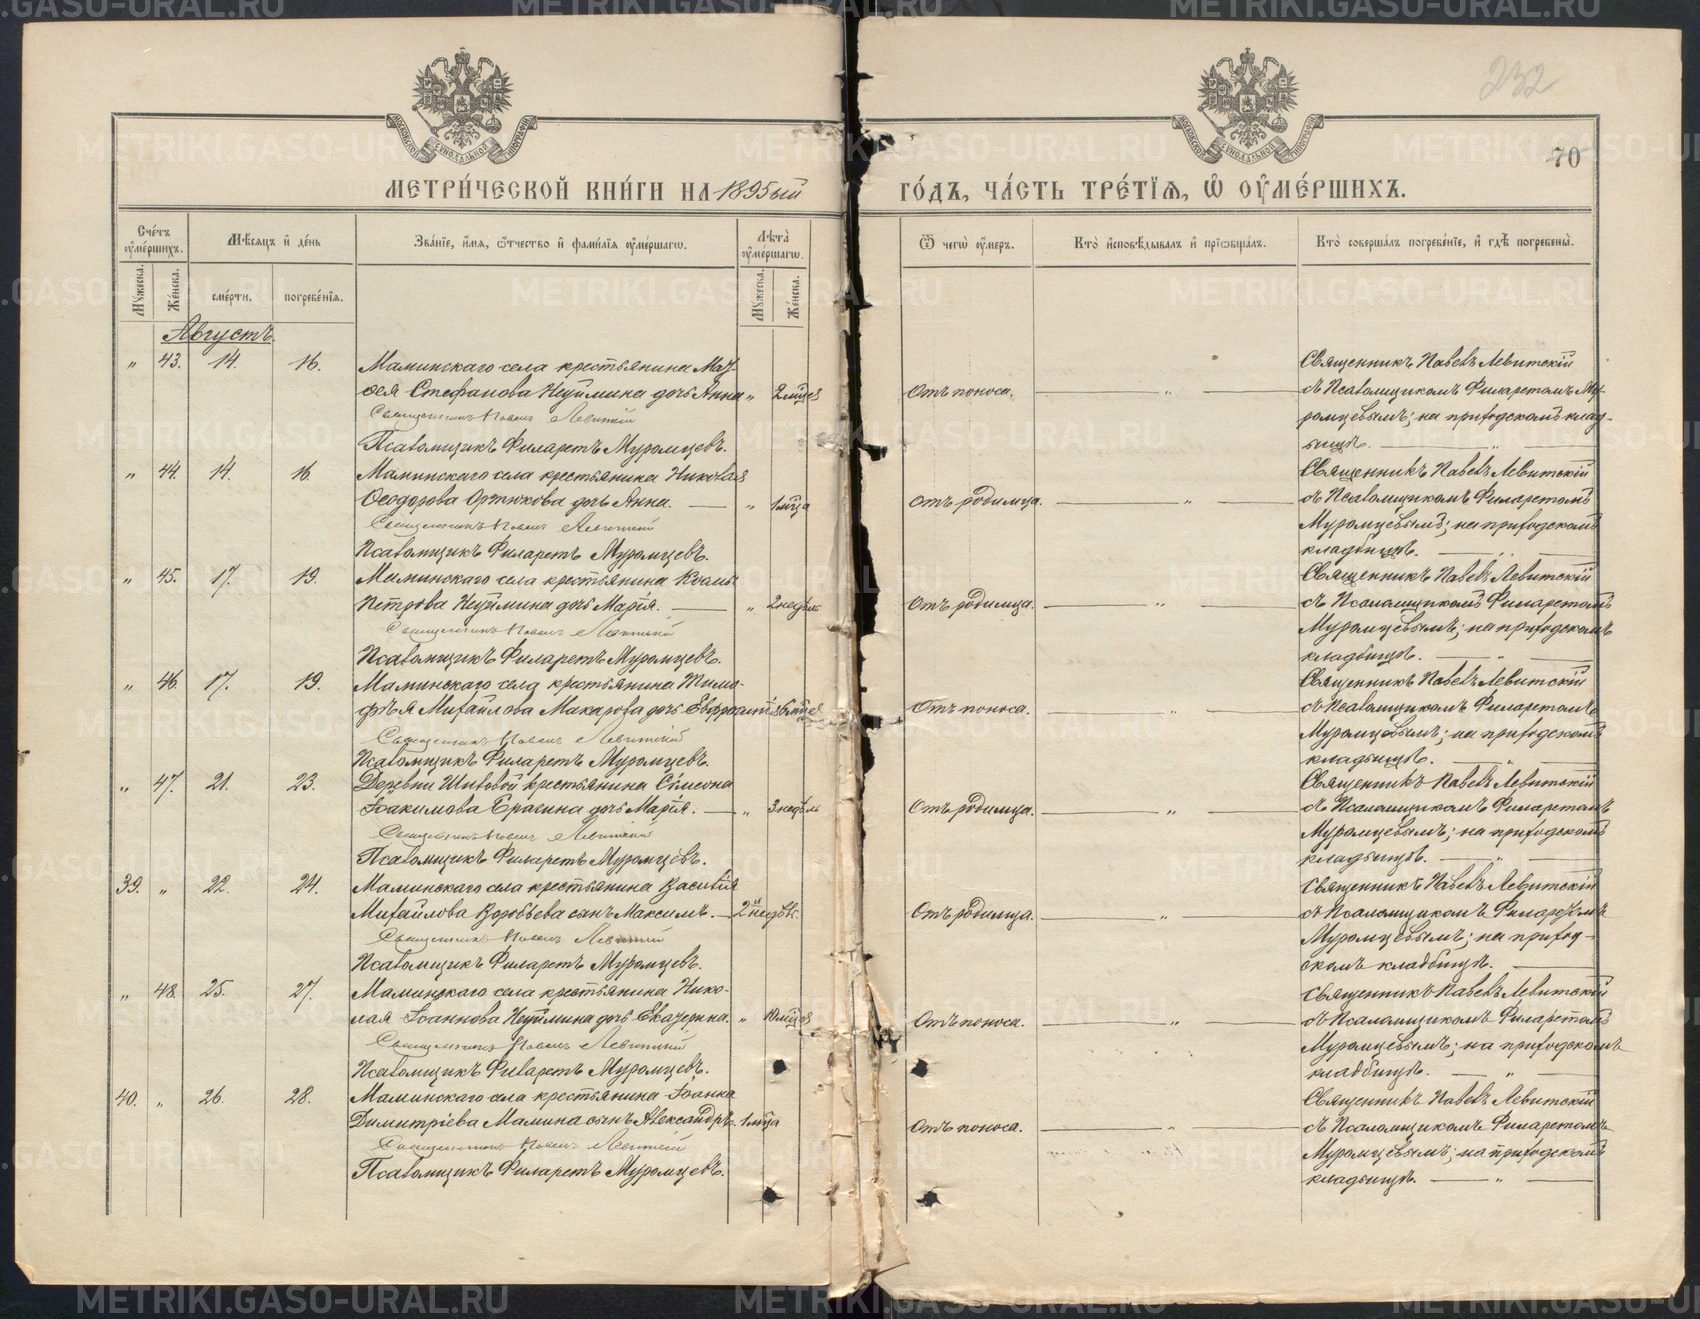 232
70
МОСКОВСКОЙ СѴНОДАЛЬНОЙ ТИПОГРАФІИ
МОСКОВСКОЙ СѴНОДАЛЬНОЙ ТИПОГРАФІИ
МЕТРИ́ЧЕСКОЙ КНИ́ГИ НА 1895ый
ГО́ДЪ, ЧА́СТЬ ТРЕ́ТІѦ, Ѡ҆ ОУ҆МЕ́РШИХЪ.
Сче́тъ оу҆ме́ршихъ.
Мꙋ́жеска.
Же́нска.
Мѣ́сѧцъ и҆ де́нь
сме́рти.
погребе́нїѧ.
Зва́нїе, и҆́мѧ, ѻ҆́тчество и҆ фами́лїѧ оу҆ме́ршагѡ.
Лѣ́та оу҆ме́ршагѡ.
Мꙋ́жеска.
Же́нска.
Ѿ чегѡ̀ оу҆́меръ.
Кто̀ и҆сповѣ́дывалъ и҆ прїѡбща́лъ.
Кто̀ соверша́лъ погребе́нїе, и҆ гдѣ̀ погребены̀.
Августъ.
" 43. 14. 16. Маминскаго села крестьянина Мат-
фея Стефанова Неуймина дочь Анна " 2 мцев
Священникъ Павелъ Левитскій
Псаломщикъ Филаретъ Муромцевъ.
Отъ поноса. — " —
Священникъ Павелъ Левитскій
съ Псаломщикомъ Филаретомъ Му-
ромцевымъ; на приходскомъ клад-
бищѣ. — " —
" 44. 14. 16. Маминскаго села крестьянина Николая
Ѳеодорова дочь Анна. — " 1 мца
Священникъ Павелъ Левитскій
Псаломщикъ Филаретъ Муромцевъ.
отъ родимца. — " —
Священникъ Павелъ Левитскій
съ Псаломщикомъ Филаретомъ
Муромцевымъ; на приходскомъ
кладбищѣ. — " —
" 45. 17. 19. Маминскаго села крестьянина Козмы
Петрова Неуймина дочь Марія. — " 2 недѣль
Священникъ Павелъ Левитскій
Псаломщикъ Филаретъ Муромцевъ.
Отъ родимца. — " —
Священникъ Павелъ Левитскій
съ Псаломщикомъ Филаретомъ
Муромцевымъ; на приходскомъ
кладбищѣ. — " —
" 46. 17. 19. Маминскаго села крестьянина Тимо-
фѣя Михайлова Макарова дочь
Священникъ Павелъ Левитскій
Псаломщикъ Филаретъ Муромцевъ.
Отъ поноса. — " —
Священникъ Павелъ Левитскій
съ Псаломщикомъ Филаретомъ
Муромцевымъ; на приходскомъ
кладбищѣ. — " —
" 47. 21. 23. Деревни Шиловой крестьянина Сѵмеона
Іоакимова Брагина дочь Марія. — " 3 недѣль
Священникъ Павелъ Левитскій
Псаломщикъ Филаретъ Муромцевъ.
Отъ родимца. — " —
Священникъ Павелъ Левитскій
съ Псаломщикомъ Филаретомъ
Муромцевымъ; на приходскомъ
кладбищѣ. — " —
39. " 22. 24. Маминскаго села крестьянина Василія
Михайлова Воробьева сынъ Максимъ. — 2 недѣль "
Священникъ Павелъ Левитскій
Псаломщикъ Филаретъ Муромцевъ.
Отъ родимца. — " —
Священникъ Павелъ Левитскій
съ Псаломщикомъ Филаретомъ
Муромцевымъ; на приход-
скомъ кладбищѣ. —
" 48. 25. 27. Маминскаго села крестьянина Нико-
лая Іоаннова Неуймина дочь Екатерина. " 10 мцев
Священникъ Павелъ Левитскій
Псаломщикъ Филаретъ Муромцевъ.
Отъ поноса. — " —
Священникъ Павелъ Левитскій
съ Псаломщикомъ Филаретомъ
Муромцевымъ; на приходскомъ
кладбищѣ. — " —
40. " 26. 28. Маминскаго села крестьянина Іоанна
Димитріева Мамина сынъ Александръ. 1 мца
Священникъ Павелъ Левитскій
Псаломщикъ Филаретъ Муромцевъ.
Отъ поноса. — " —
Священникъ Павелъ Левитскій
съ Псаломщикомъ Филаретомъ
Муромцевымъ; на приходскомъ
кладбищѣ. — " —
METRIKI.GASO-URAL.RU